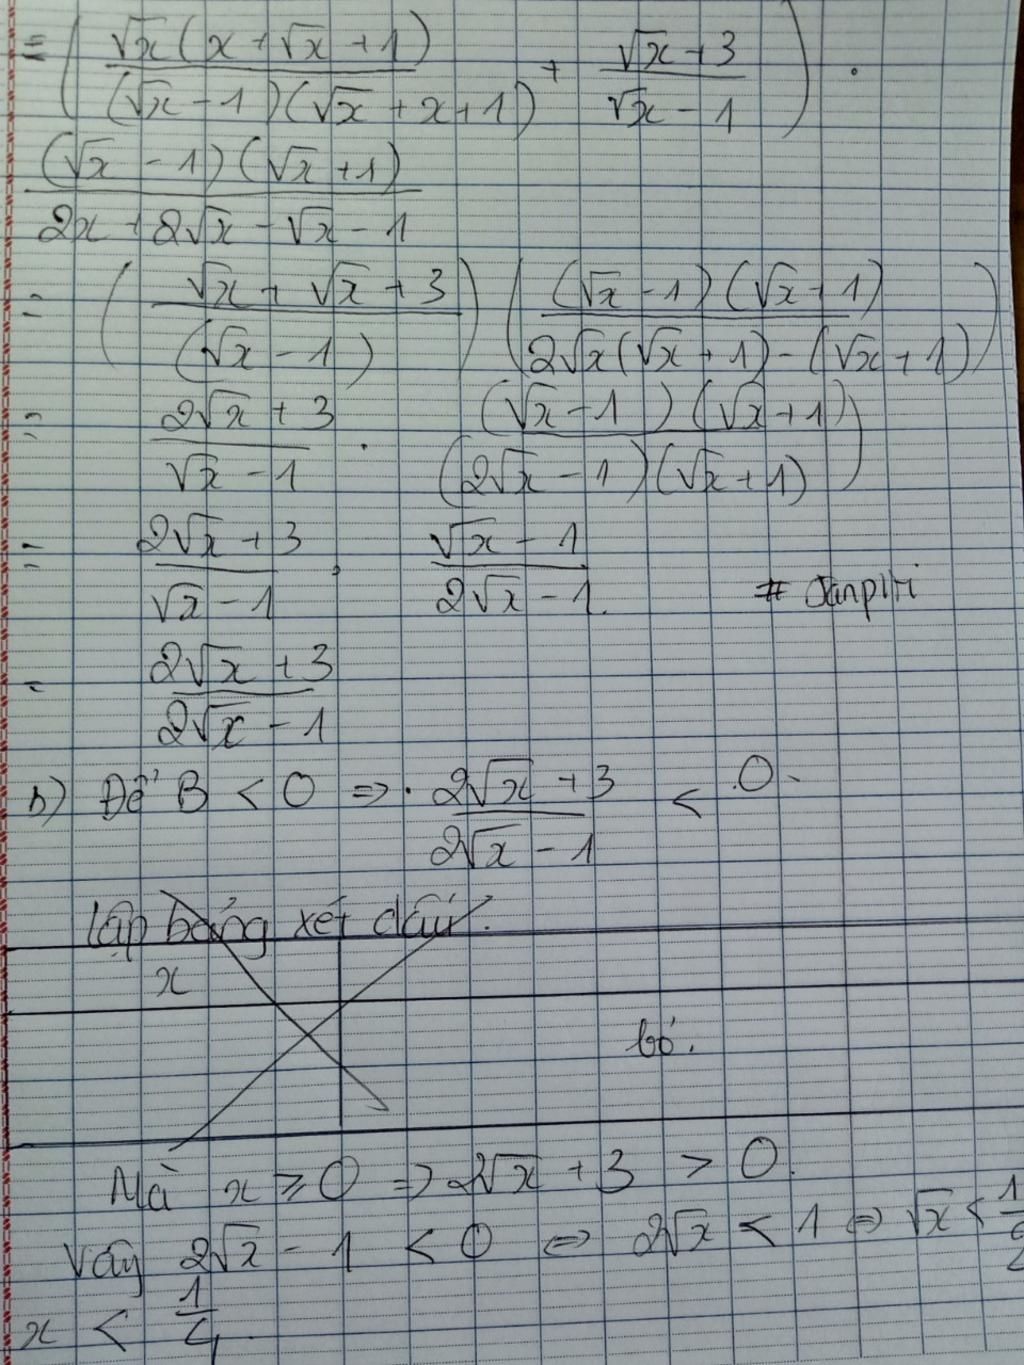 = ( √x(x+√x+1) / (√x-1)(√x+x+1) + √x+3 / √x-1 ) .
(√x-1)(√x+1) / 2x+2√x-√x-1
= ( √x+√x+3 / (√x-1) ) ( (√x-1)(√x+1) / 2√x(√x+1)-(√x+1) )
= 2√x+3 / √x-1 . (√x-1)(√x+1) / (2√x-1)(√x+1) )
= 2√x+3 / √x-1 . √x-1 / 2√x-1
#
= 2√x+3 / 2√x-1
b) Để B < 0 => . 2√x+3 / 2√x-1 < 0.
Lập bảng xét dấu:
x
bỏ.
Mà x ≥ 0 => 2√x + 3 > 0.
Vậy 2√x - 1 < 0 <=> 2√x < 1 <=> √x < 1/2
x < 1/4.